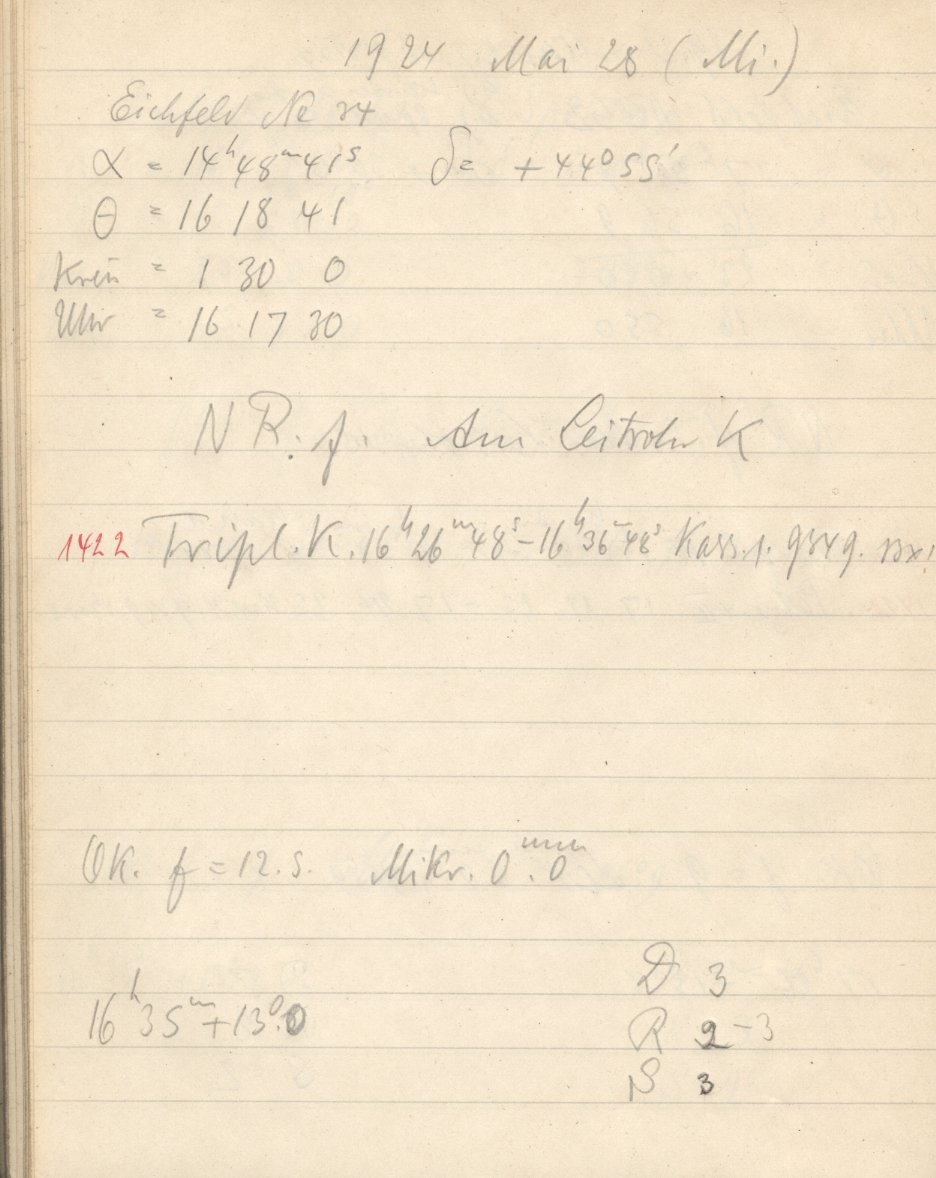 1924 Mai 28 (Mi.)
Eichfeld No 34
α = 14ʰ48ᵐ41ˢ δ = +44°55'
θ = 16 18 41
= 1 30 0
Uhr = 16 17 30
N R. f. Am Leitrohr K
1422 Tripl. K. 16ʰ26ᵐ48ˢ–16ʰ36ᵐ48ˢ Kass. 1. 9349.
OK. f = 12.5. Mikr. 0ᵐᵐ.0
D 3
16ʰ35ᵐ +13°.0
R 2–3
S 3